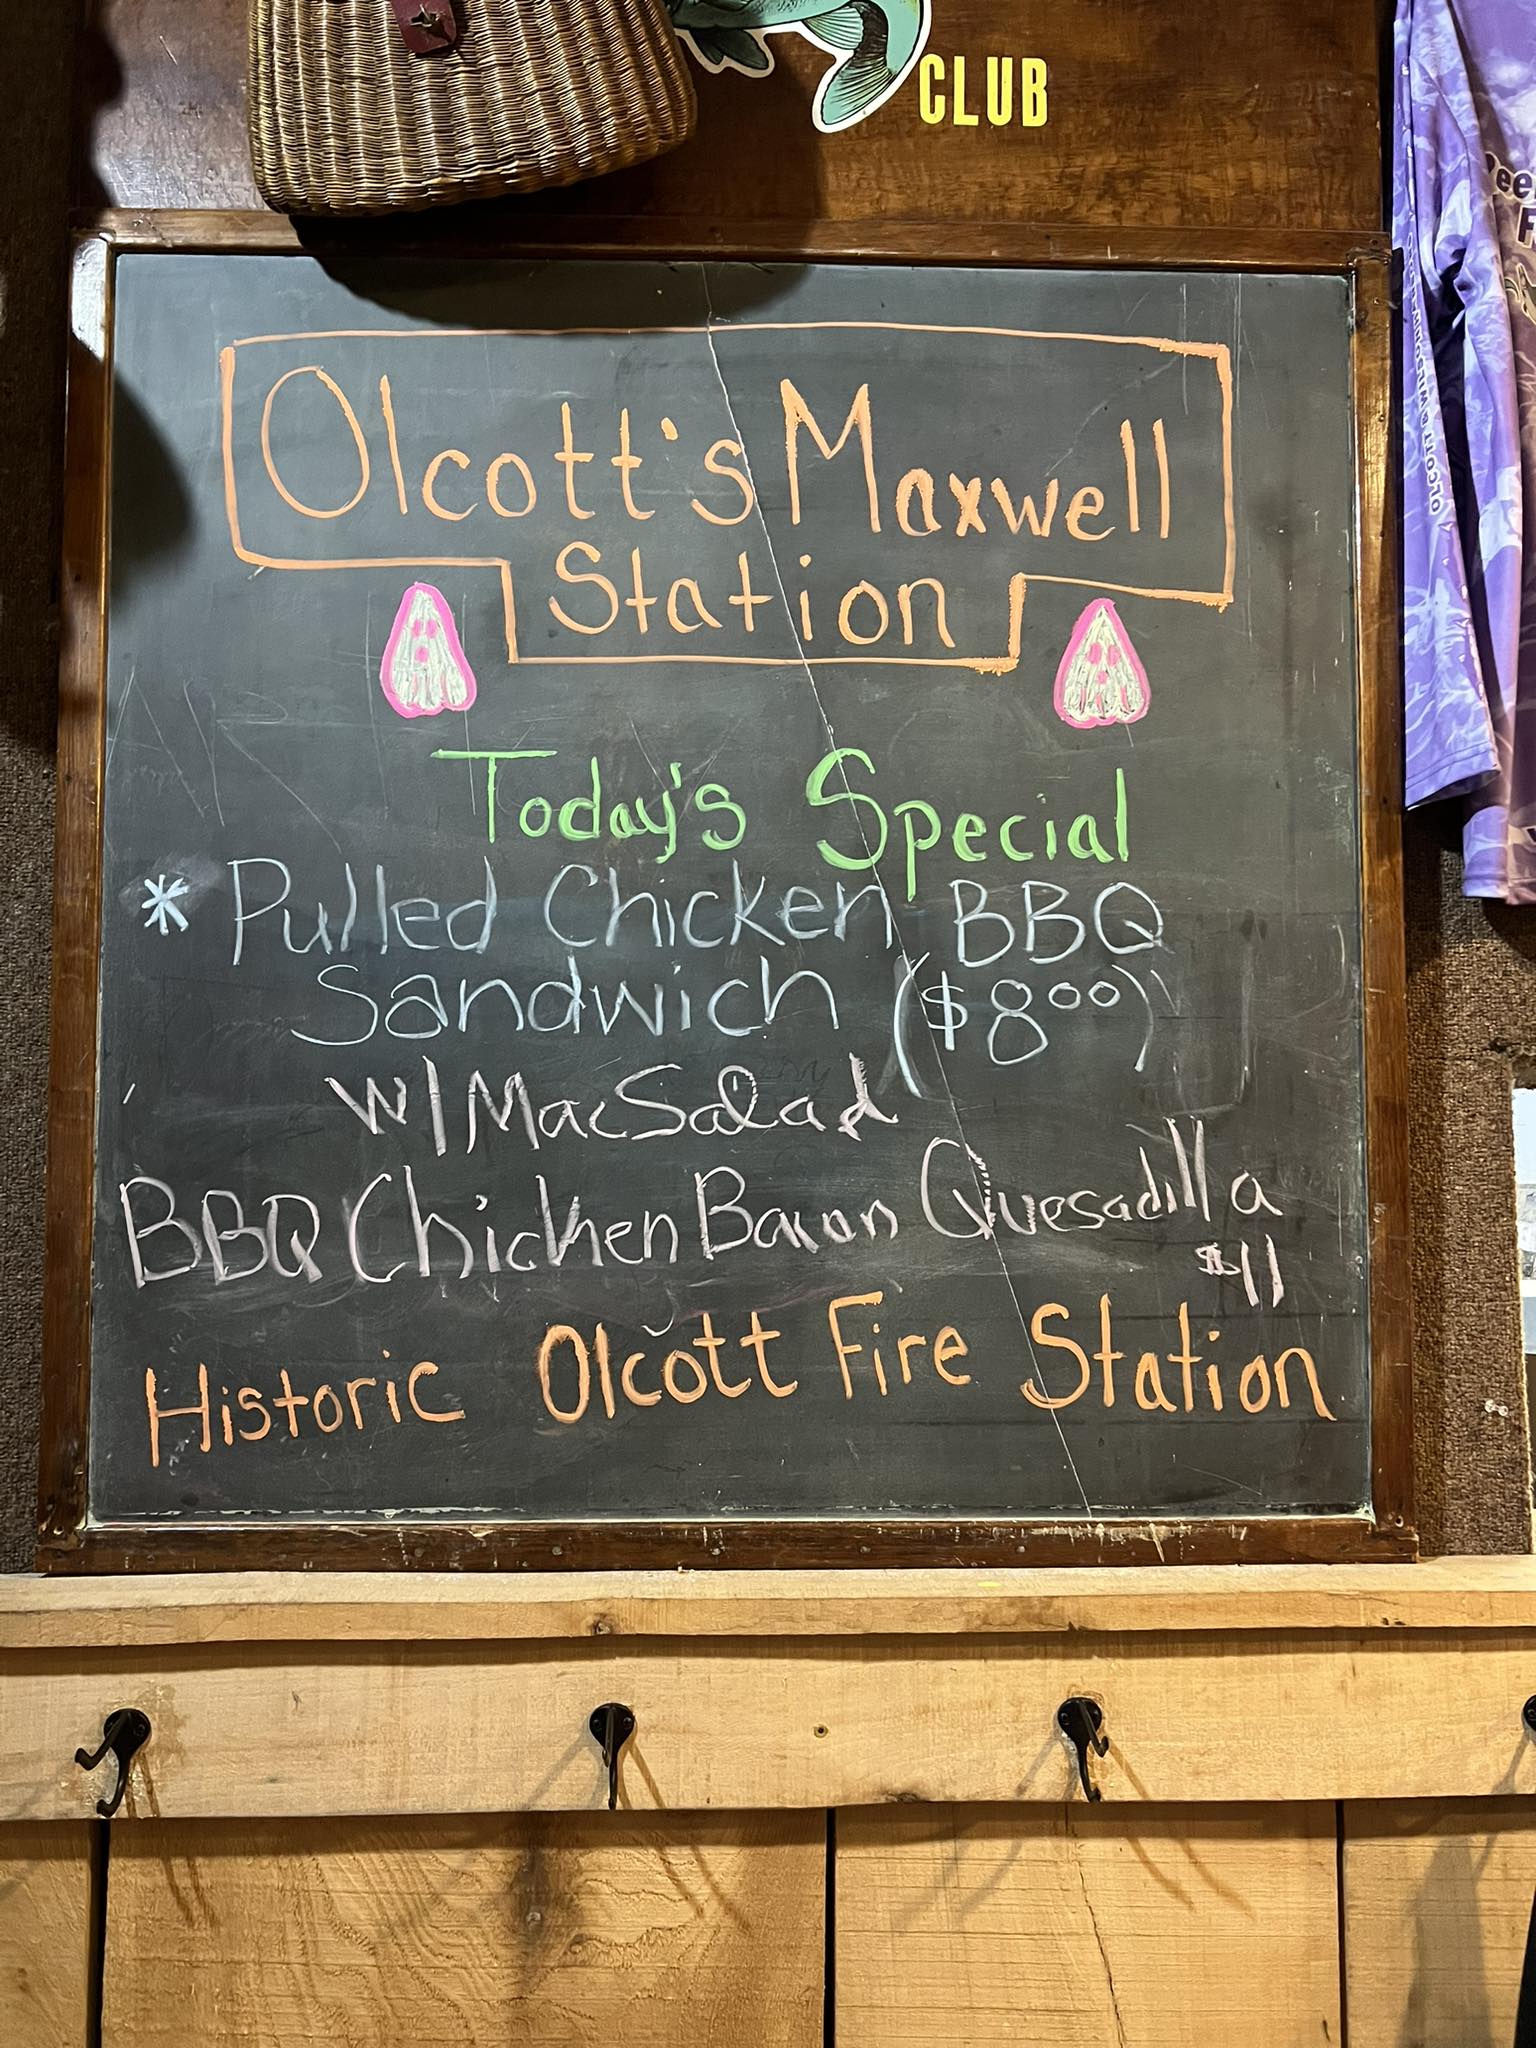 CLUB
Olcott's Maxwell
Station
Today's Special
* Pulled Chicken BBQ
Sandwich ($8⁰⁰)
w/ Mac Salad
BBQ Chicken Bacon Quesadilla
$11
Historic Olcott Fire Station